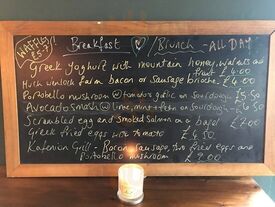 WAFFLES
£5.7
Breakfast / Brunch - ALL DAY
Greek yoghurt with mountain honey, walnuts and
fruit £4.00
farm bacon or sausage brioche £4.00
Portobello mushroom @ tomato garlic on sourdough £5.50
Avocado smash @ lime, mint + feta on sourdough £
Scrambled egg and smoked salmon on a bagel £7.00
Greek fried eggs with tomato £4.50
Grill - Bacon, sausage, two fried eggs and
Portobello mushroom £9.00